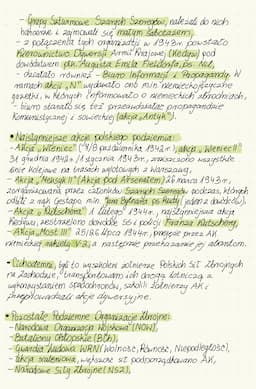 - Grupy Szturmowe Szarych Szeregów, należeli do nich
harcerze i zajmowali się małym sabotażem,
- z połączenia tych organizacji w 1943r. powstało
Kierownictwo Dywersji Armii Krajowej (Kedyw) pod
dowództwem płk. Augusta Emila Fieldorfa, ps. Nil,
- działało również - Biuro Informacji i Propagandy. W
ramach akcji „N" wydawało ono min. niemieckojęzyczne
gazetki, w których informowało o niemieckich zbrodniach,
- biuro starało się też przeciwdziałać propagandzie
komunistycznej i sowieckiej (akcja „Antyk").
• Najsłynniejsze akcje polskiego podziemia:
- Akcja „Wieniec" (7/8 października 1942r.), akcja „Wieniec II"
31 grudnia 1942r./1 stycznia 1943r., zniszczono wszystkie
linie kolejowe na trasach wylotowych z Warszawą,
- Akcja „Meksyk II" (Akcja pod Arsenałem) 26 marca 1943r.,
zorganizowana przez członków Szarych Szeregów podczas, których
odbili z rąk gestapo min. Jana Bytnara ps. Rudy (jeden z dowódców).
- Akcja „Kutschera" 1 lutego 1944r., najsłynniejsza akcja
Kedywu, zastrzelono dowódcę SS i policji Franza Kutscherę,
- Akcja „Most III" 25/26 lipca 1944r., przejęcie przez AK
niemieckiej rakiety V-2, a następnie przekazanie jej aliantom.
• Cichociemni, byli to wyszkoleni żołnierze Polskich Sił Zbrojnych
na Zachodzie, transportowani ich drogą lotniczą z
wykorzystaniem spadochronów, szkolili żołnierzy AK i
przeprowadzali akcje dywersyjne.
• Pozostałe Podziemne Organizacje Zbrojne:
- Narodowa Organizacja Wojskowa (NOW),
- Bataliony Chłopskie (BCh),
- Gwardia Ludowa WRN (Wolność, Równość, Niepodległość),
- Akcja scaleniowa, większość sił podporządkowano AK,
- Narodowe Siły Zbrojne (NSZ),